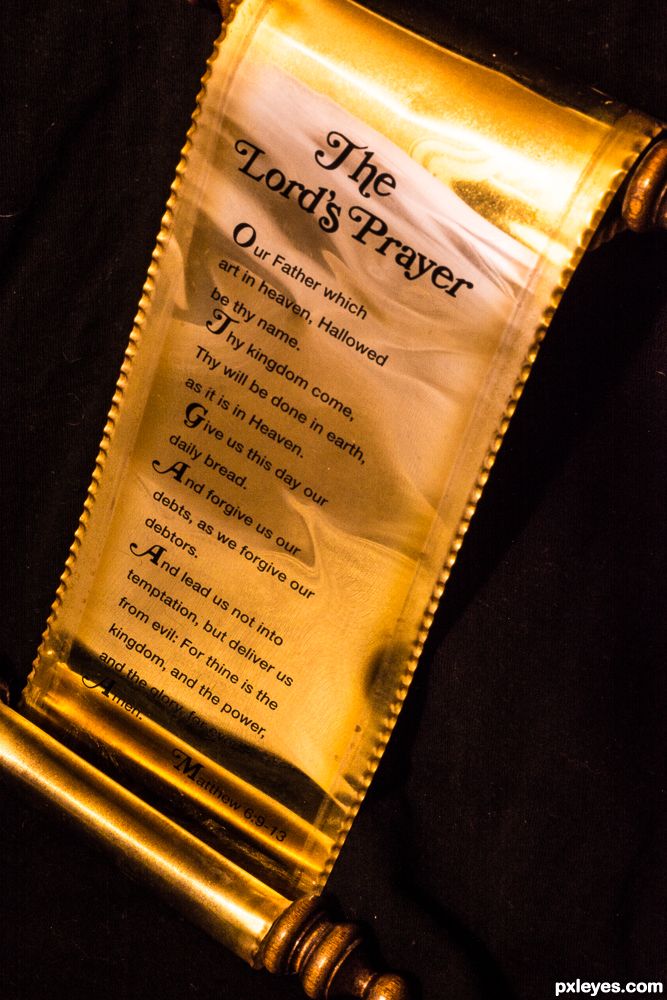 The
Lord's Prayer
Our Father which
art in heaven, Hallowed
be thy name.
Thy kingdom come,
Thy will be done in earth,
as it is in Heaven.
Give us this day our
daily bread.
And forgive us our
debts, as we forgive our
debtors.
And lead us not into
temptation, but deliver us
from evil: For thine is the
kingdom, and the power,
and the glory, for
Amen.
Matthew 6:9-13
pxleyes.com